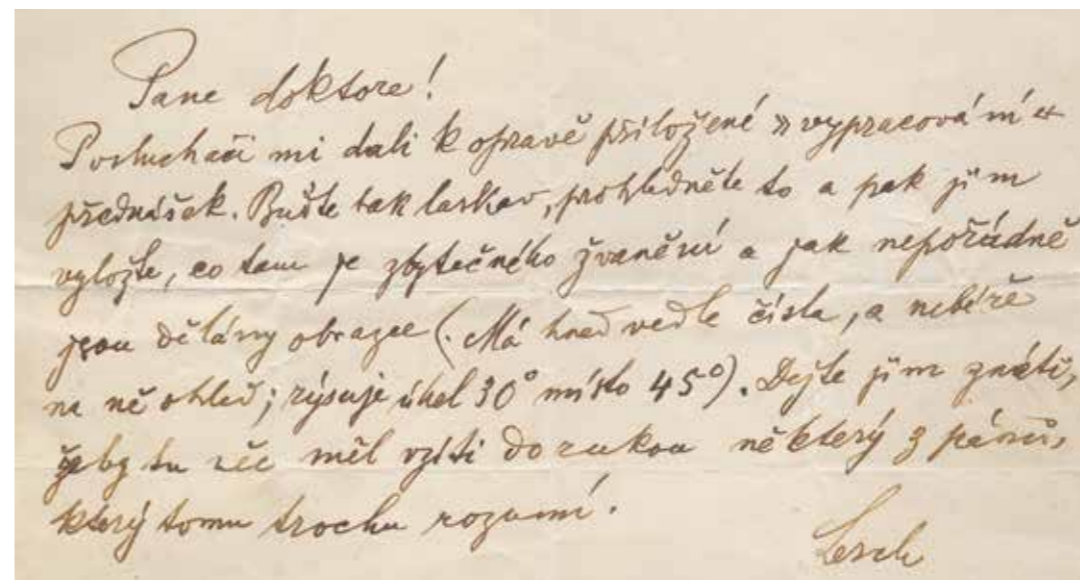 Pane doktore!
Posluchači mi dali k opravě přiložené »vypracování«
přednášek. Buďte tak laskav, prohlédněte to a pak jim
vyložte, co tam je zbytečného žvanění a jak nepořádně
jsou dělány obrazce (. Má hned vedle čísla, a nebéře
na ně ohled; rýsuje úhel 30° místo 45°). Dejte jim znáti,
že by tu věc měl vzíti do rukou některý z pánů,
který tomu trochu rozumí.
Lerch